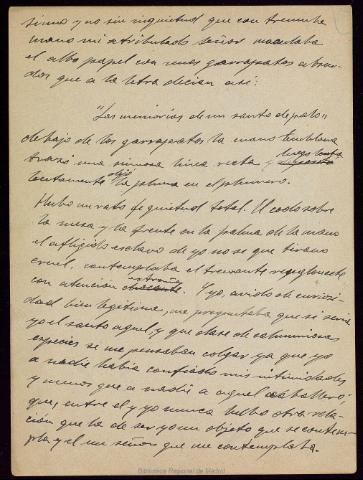 simo y no sin inquietud que con tremula
mano mi atribulado señor maculaba
el albo papel con unos garrapatos atrave
dos que a la letra decian asi:
"Las memorias de un santo de palo"
debajo de los garrapatos la mano temblona
trazó una sinuosa linea recta y luego
lentamente dejó la pluma en el plumero.
Hubo un rato de quietud total. El codo sobre
la mesa y la frente en la palma de la mano
el afligido esclavo de yo no se que tirano
cruel, contemplaba el
con atención extraña. Y yo, avido de curiosi
dad bien legitima, me preguntaba que si seria
yo el santo aquel y que clase de calumniosas
especies se me pensaban colgar ya que yo
a nadie habia confiado mis intimidades
y menos que a nadie a aquel caballero,
pues entre el y yo nunca hubo otra rela
ción que la de ser yo un objeto que se contem
pla y el un señor que me contemplaba.
Biblioteca Regional de Madrid